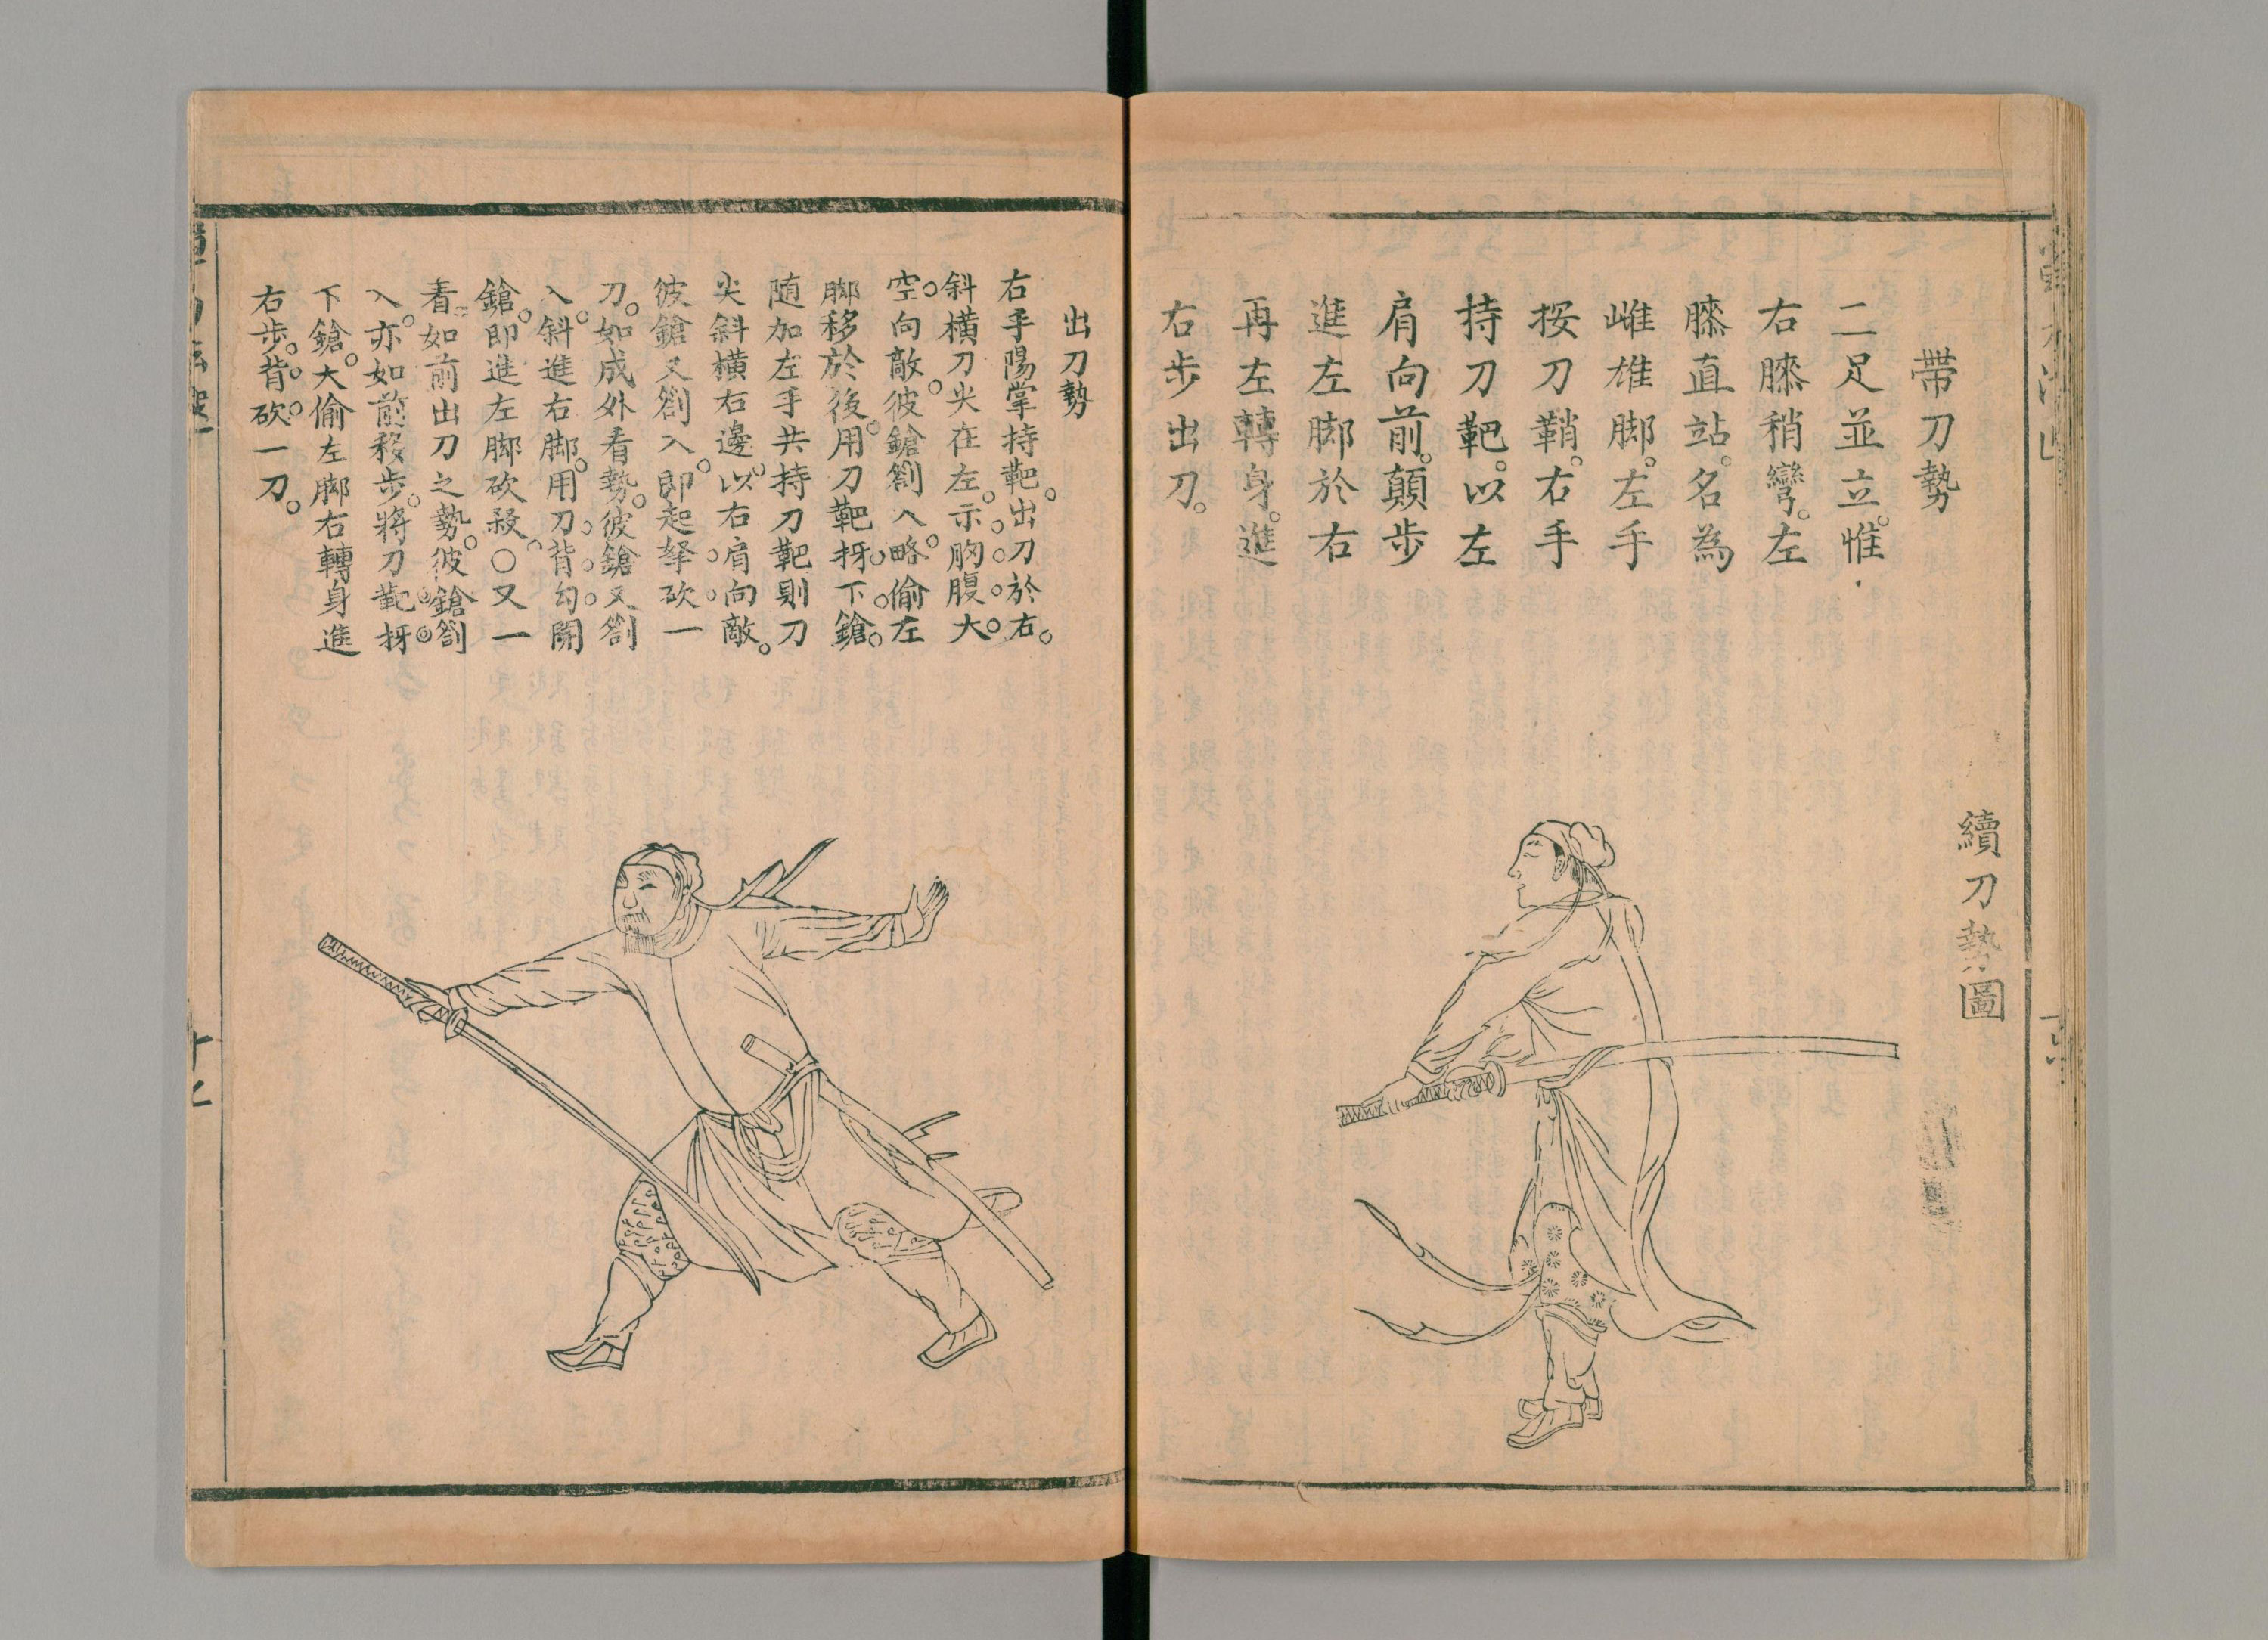 續刀勢圖
帶刀勢
二足並立。惟
右膝稍彎。左
膝直站。名為
雌雄脚。左手
按刀鞘。右手
持刀靶。以左
肩向前。顛步
進左脚於右
再左轉身。進
右步出刀。
出刀勢
右手陽掌持靶。出刀於右。
斜橫刀尖在左。示胸腹大
空。向敵。彼鎗劄入。略偷左
脚移於後。用刀靶拐下鎗。
隨加左手共持刀靶則刀
尖斜橫右邊。以右肩向敵。
彼鎗又劄入。即起拏砍一
刀。如成外看勢。彼鎗又劄
入。斜進右脚。用刀背勾開
鎗。即進左脚砍殺。○又一
看。如前出刀之勢。彼鎗劄
入。亦如前移步。將刀靶拐
下鎗。大偷左脚右轉身進
右步。背砍一刀。